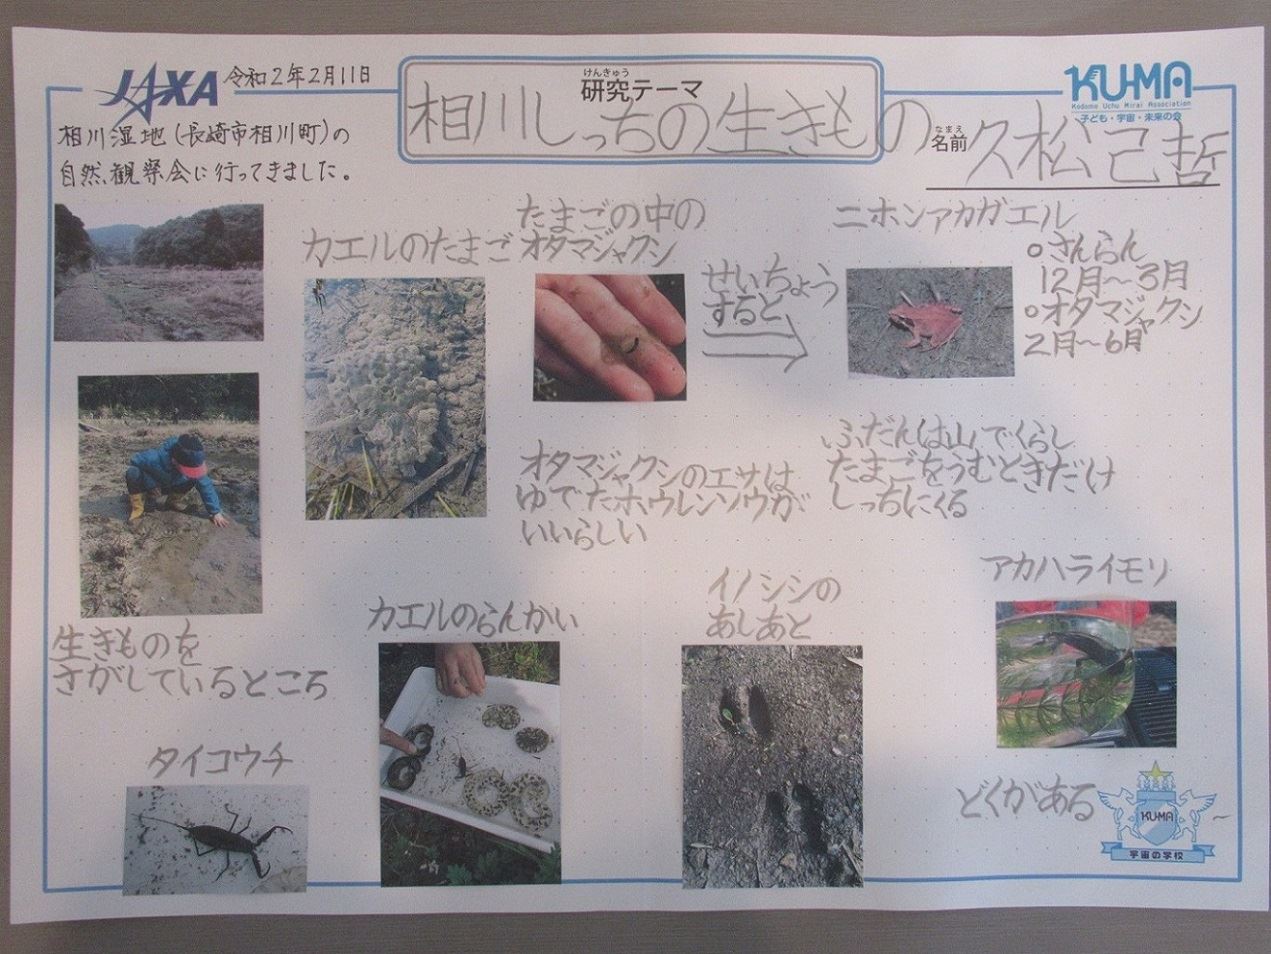 JAXA
令和2年2月11日
けんきゅう
研究テーマ
相川しっちの生きもの
KU-MA
Kodomo Uchu Mirai Association
子ども・宇宙・未来の会
なまえ
名前
久松己哲
相川湿地(長崎市相川町)の
自然観察会に行ってきました。
カエルのたまご
たまごの中の
オタマジャクシ
せいちょう
すると
ニホンアカガエル
○さんらん
12月~3月
○オタマジャクシ
2月~6月
オタマジャクシのエサは
ゆでたホウレンソウが
いいらしい
ふだんは山でくらし
たまごをうむときだけ
しっちにくる
生きものを
さがしているところ
カエルのらんかい
イノシシの
あしあと
アカハライモリ
どくがある
タイコウチ
KUMA
宇宙の学校